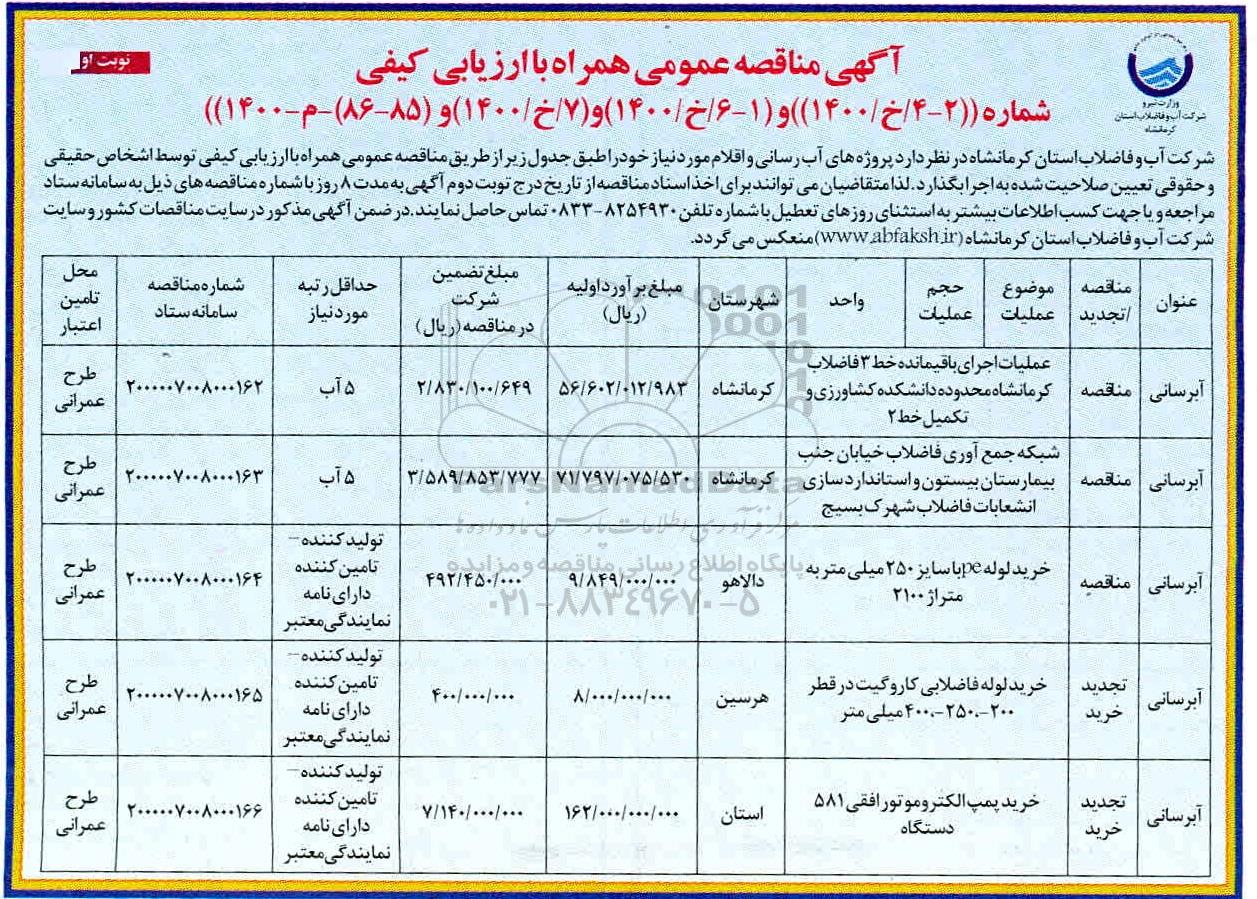 نوبت او
وزارت نیرو
شرکت آب و فاضلاب استان
کرمانشاه
آگهی مناقصه عمومی همراه با ارزیابی کیفی
شماره ((۲-۴/خ/۱۴۰۰))و (۱-۶/خ/۱۴۰۰)و(۷/خ/۱۴۰۰)و (۸۵-۸۶)-م-۱۴۰۰))
شرکت آب و فاضلاب استان کرمانشاه در نظر دارد پروژه های آب رسانی و اقلام مورد نیاز خود را طبق جدول زیر از طریق مناقصه عمومی همراه با ارزیابی کیفی توسط اشخاص حقیقی
و حقوقی تعیین صلاحیت شده به اجرا بگذارد. لذا متقاضیان می توانند برای اخذ اسناد مناقصه از تاریخ درج نوبت دوم آگهی به مدت ۸ روز با شماره مناقصه های ذیل به سامانه ستاد
مراجعه و یا جهت کسب اطلاعات بیشتر به استثنای روزهای تعطیل با شماره تلفن ۸۲۵۴۹۳۰-۰۸۳۳ تماس حاصل نمایند. در ضمن آگهی مذکور در سایت مناقصات کشور و سایت
شرکت آب و فاضلاب استان کرمانشاه (www.abfaksh.ir) منعکس می گردد.
عنوان | مناقصه /تجدید | موضوع عملیات | حجم عملیات | واحد | شهرستان | مبلغ برآورد اولیه (ریال) | مبلغ تضمین شرکت در مناقصه (ریال) | حداقل رتبه مورد نیاز | شماره مناقصه سامانه ستاد | محل تامین اعتبار
آبرسانی | مناقصه | عملیات اجرای باقیمانده خط ۳ فاضلاب کرمانشاه محدوده دانشکده کشاورزی و تکمیل خط ۲ | کرمانشاه | ۵۶/۶۰۲/۰۱۲/۹۸۳ | ۲/۸۳۰/۱۰۰/۶۴۹ | ۵ آب | ۲۰۰۰۰۰۷۰۰۸۰۰۰۱۶۲ | طرح عمرانی
آبرسانی | مناقصه | شبکه جمع آوری فاضلاب خیابان جنب بیمارستان بیستون و استاندارد سازی انشعابات فاضلاب شهرک بسیج | کرمانشاه | ۷۱/۷۹۷/۰۷۵/۵۳۰ | ۳/۵۸۹/۸۵۳/۷۷۷ | ۵ آب | ۲۰۰۰۰۰۷۰۰۸۰۰۰۱۶۳ | طرح عمرانی
آبرسانی | مناقصه | خرید لوله pe با سایز ۲۵۰ میلی متر به متراژ ۲۱۰۰ | دالاهو | ۹/۸۴۹/۰۰۰/۰۰۰ | ۴۹۲/۴۵۰/۰۰۰ | تولید کننده- تامین کننده دارای نامه نمایندگی معتبر | ۲۰۰۰۰۰۷۰۰۸۰۰۰۱۶۴ | طرح عمرانی
آبرسانی | تجدید خرید | خرید لوله فاضلابی کاروگیت در قطر ۲۰۰-،۲۵۰-،۴۰۰ میلی متر | هرسین | ۸/۰۰۰/۰۰۰/۰۰۰ | ۴۰۰/۰۰۰/۰۰۰ | تولید کننده- تامین کننده دارای نامه نمایندگی معتبر | ۲۰۰۰۰۰۷۰۰۸۰۰۰۱۶۵ | طرح عمرانی
آبرسانی | تجدید خرید | خرید پمپ الکتروموتور افقی ۵۸۱ دستگاه | استان | ۱۶۲/۰۰۰/۰۰۰/۰۰۰ | ۷/۱۴۰/۰۰۰/۰۰۰ | تولید کننده- تامین کننده دارای نامه نمایندگی معتبر | ۲۰۰۰۰۰۷۰۰۸۰۰۰۱۶۶ | طرح عمرانی
ParsNamadData
پایگاه اطلاع رسانی مناقصه و مزایده
۰۲۱-۸۸۳۴۹۶۷۰-۵